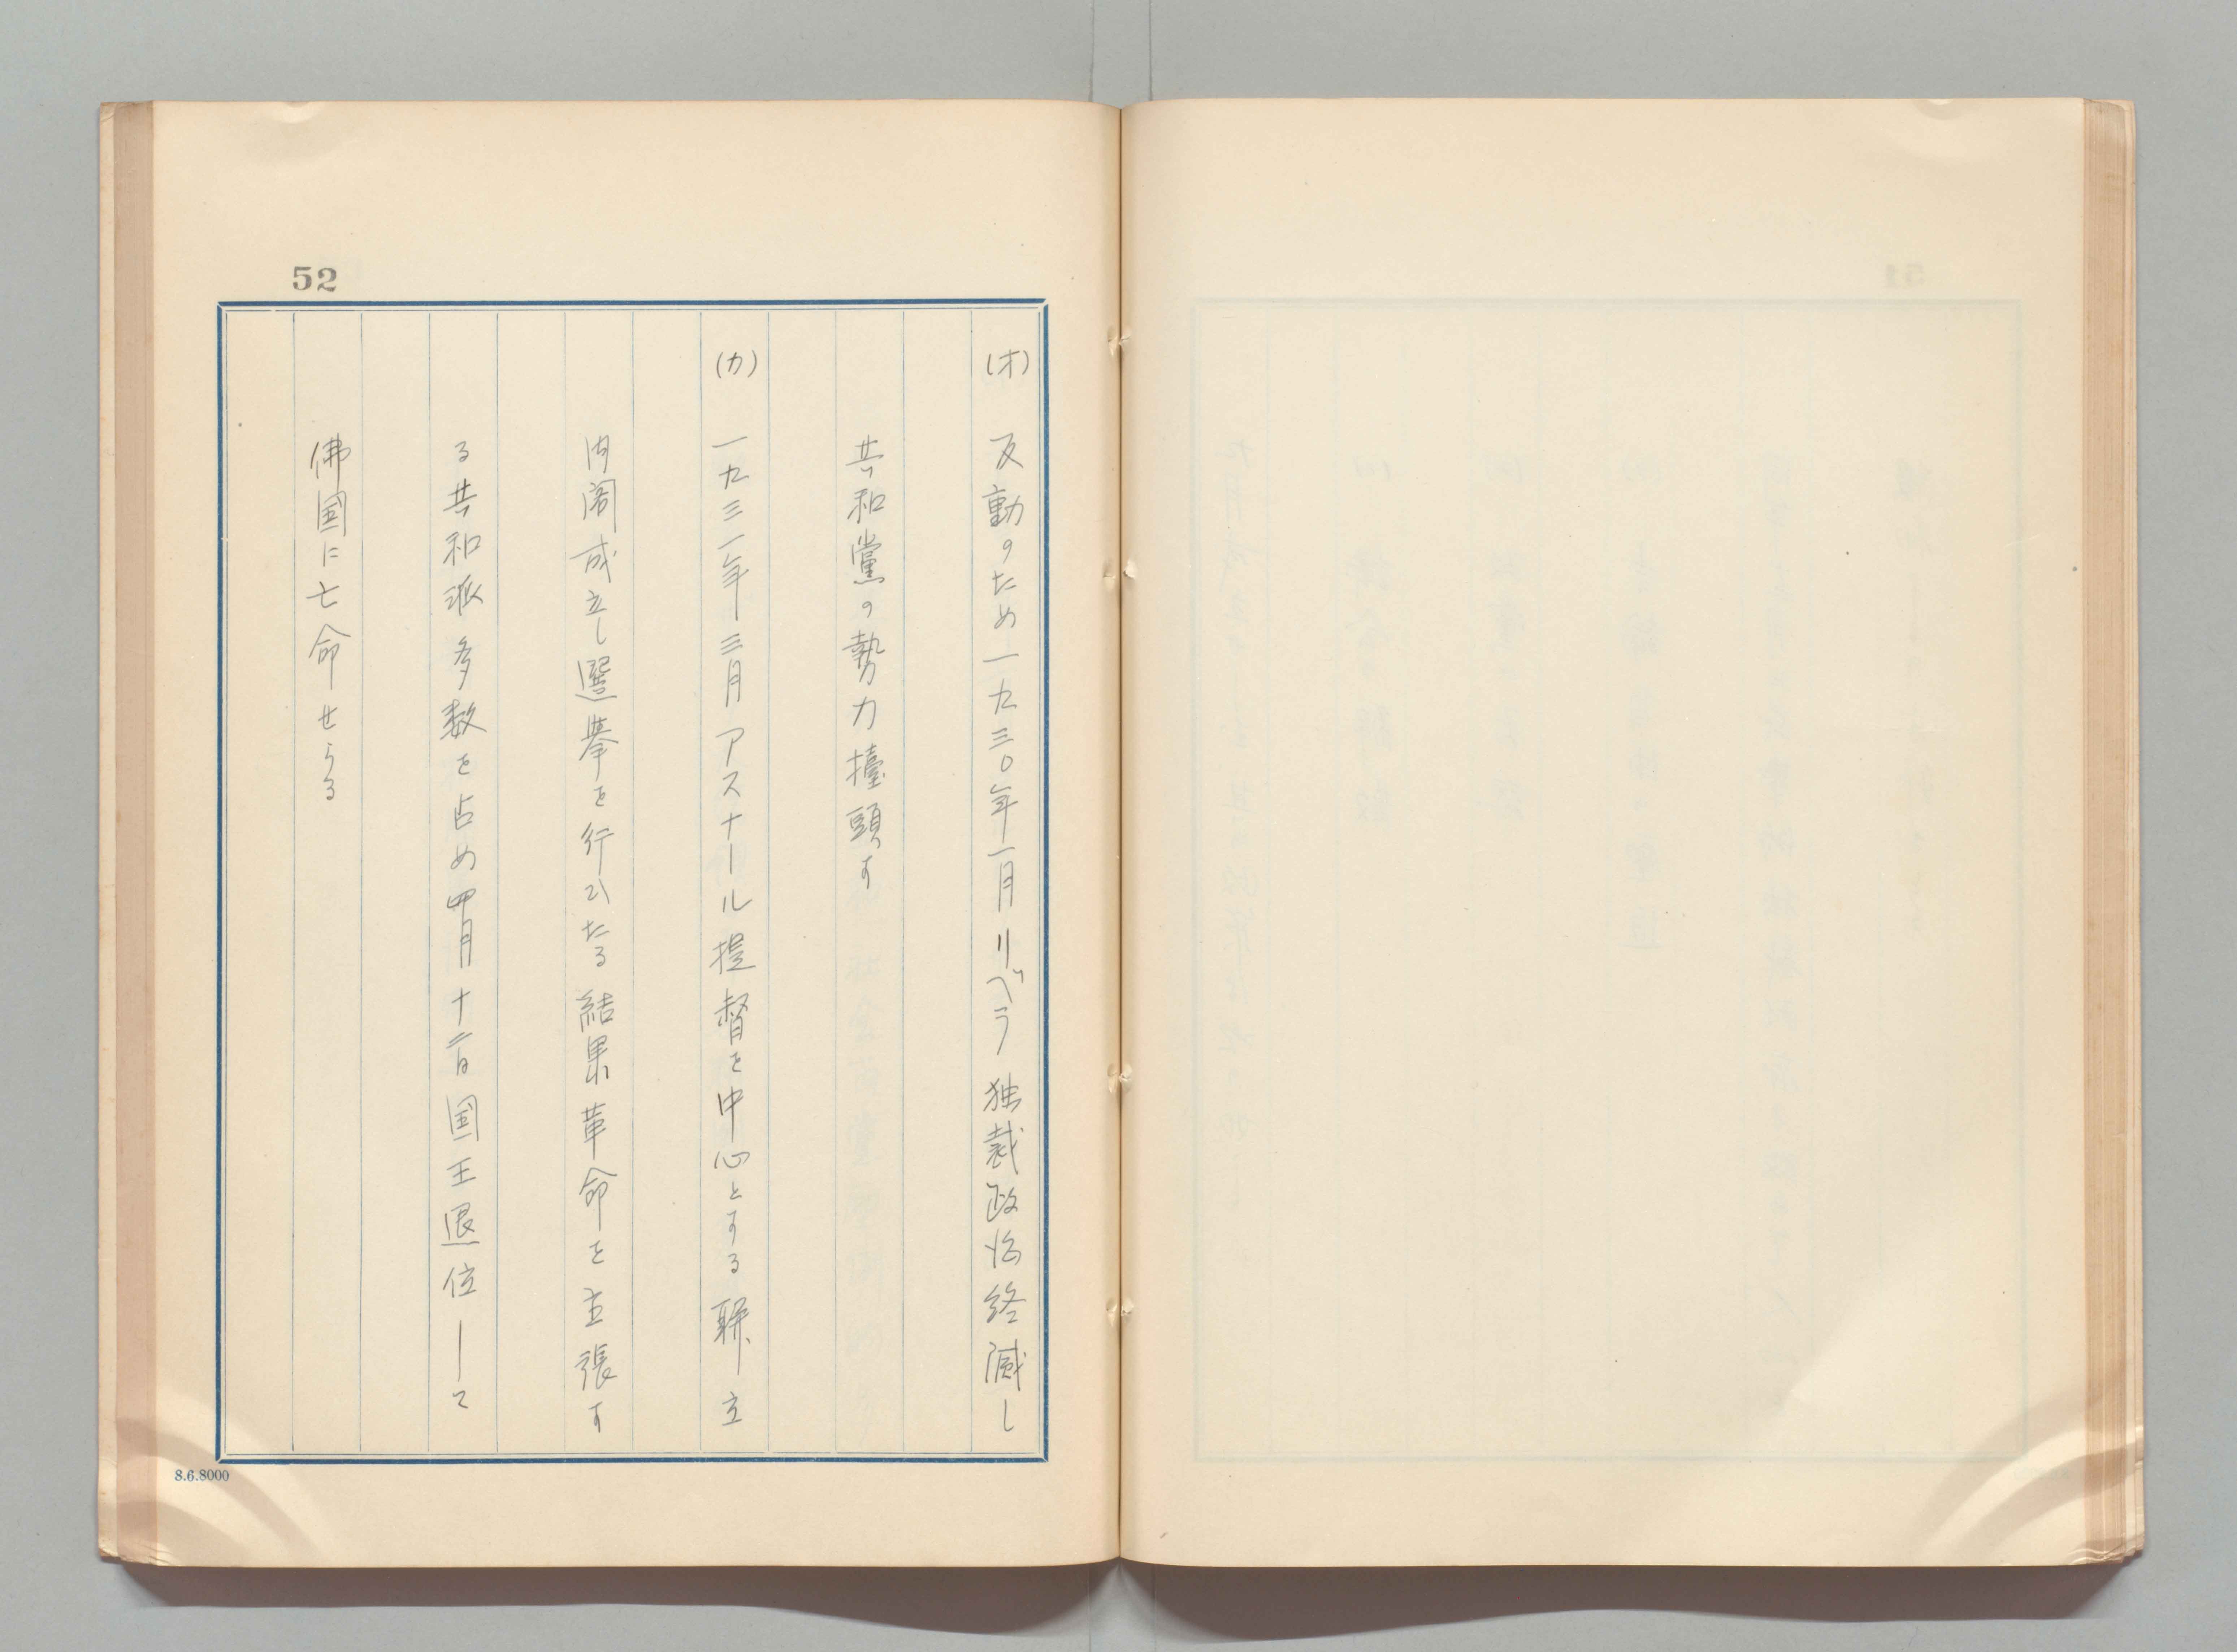 52
(オ) 反動のため一九三〇年一月リベラ独裁政治終滅し
共和黨の勢力擡頭す
(カ) 一九三一年三月アスナール提督を中心とする聯立
内閣成立し選挙を行ひたる結果革命を主張す
る共和派多数を占め四月十二日国王退位して
佛国に亡命せらる
8.6.8000